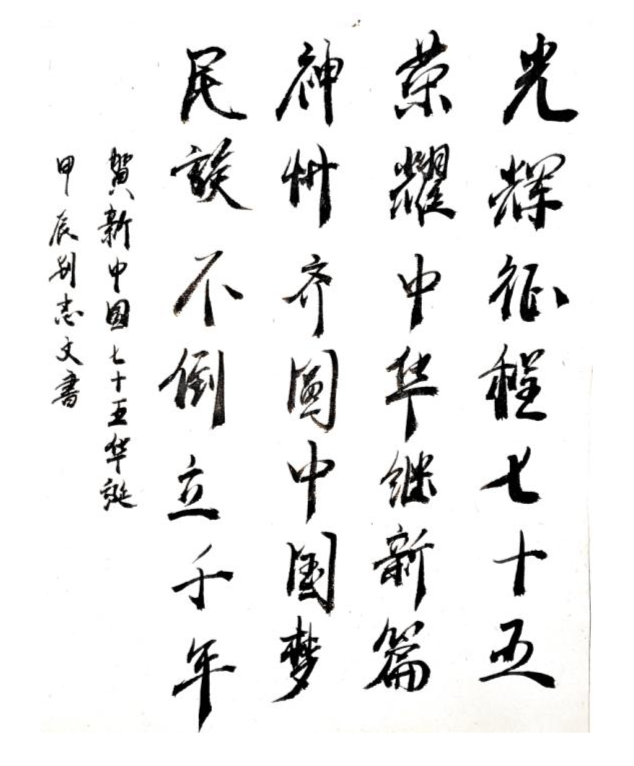 光辉征程七十五
荣耀中华继新篇
神州齐圆中国梦
民族不倒立千年
贺新中国七十五华诞
甲辰刘志文书